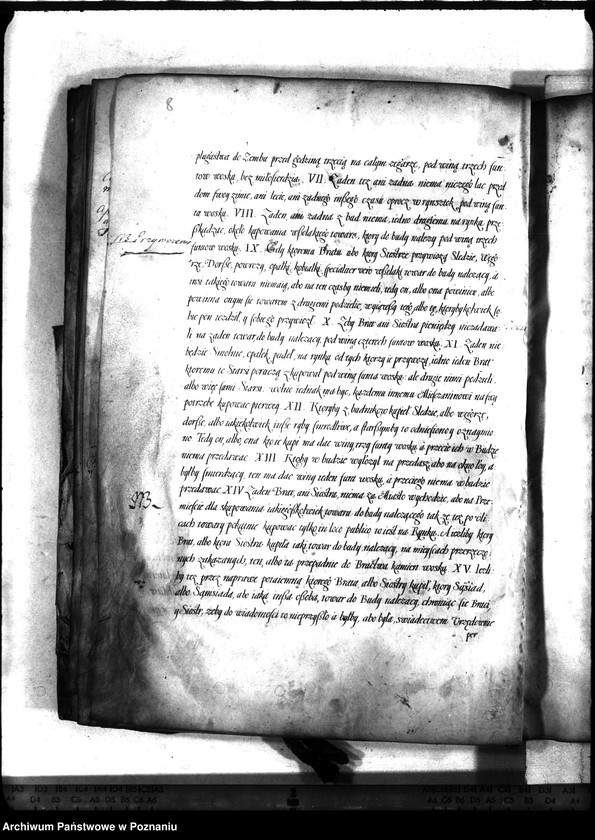 8
plugastwa de Zemba przed godziną trzecią na całym zegarze, pod winą trzech fan
tow wosku, bez miłosierdzia. VII. Zaden tez ani zadna niema niczego lac przed
dom swoy zimie, ani lecie, ani zadnego inszego czasu oprocz w rynsztok, pod winą fun
ta wosku. VIII. Zaden, ani zadna z bud niema, iedno drugiemu na rynku, prze
szkadzac, około kupowania wszelakiego towaru, ktory do budy nalezy pod winą trzech
funtow wosku. IX. Gdy ktoremu Bratu abo ktory Siestrze przywiozą Sledzie, Węgo
rze, Dorsze, powrozy, opałki, kobiałki, specialiter wszelaki towar do budy nalezący, a
inni takiego towaru niemaią, abo na ten czas by niemieli, tedy on, albo ona powinien, albo
powinna onym sie towarem z drugiemi podzielic, wyiąwszy tego, albo tę, ktoryby kolwiek so
bie pon iezdził, y sobiego przywiozł. X. Zeby Brat ani Siostra pieniędzy niezadawa
li na zaden towar, do budy nalezący, pod winą czterech funtow wosku. XI. Zaden nie
będzie Swiotnie, opałek, pudeł, na rynku od tych ktorzy ie przywozą, iedno ieden Brat
ktoremu to Starsi poruczą zkupował pod winą funta wosku: ale drugie nimi podzieli,
albo więc sami Starsi. wolno iednak ma byc, kazdemu innemu Mieszczaninowi na swą
potrzebę kupowac pierwey. XII. Ktoryby z budnikow kupieł Sledzie, albo węgorze,
dorsze, albo iakiekolwiek insze ryby smrodliwe, a starszym by to odniesiono y oznaymio
no. Tedy on, albo, ona kto ie kupi ma dac winy trzy funty wosku, a przecie ich w Budzie
niema przedawac. XIII. Ktoby w budzie wyłozył na przedaz, abo na okno łoy, a
byłby smierdzący, ten ma dac winy ieden funt wosku, a przeciego niema w budzie
przedawac. XIV. Zaden Brat, ani Siostra, niema za Miasto wychodzic, abo na Prze
miescie dla skupowania iakiegożkolwiek towaru do budy nalezącego tak ze tez po uli
cach towary pokatnie kupowac tylko in loco publico to iest na Rynku. A iezliby ktory
Brat, albo ktora Siostra kupiła iaki towar do budy nalezący, na mieyscach przerzeczo
nych zakazanych, ten, albo ta przepadnie do Bractwa kamien wosku. XV. Iezli
by tez przez naprawę potaiemną ktorego Brata, albo Siostry kupił, ktory Sąsiad,
albo Sąmsiada, abo iaka insza osoba, towar do Budy nalezący, chroniąc sie Braci,
y Siostr, zeby do wiadomosci to nieprzyszło a byłby, abo była, swiadectwem Urzędownie
per
NB
Archiwum Państwowe w Poznaniu